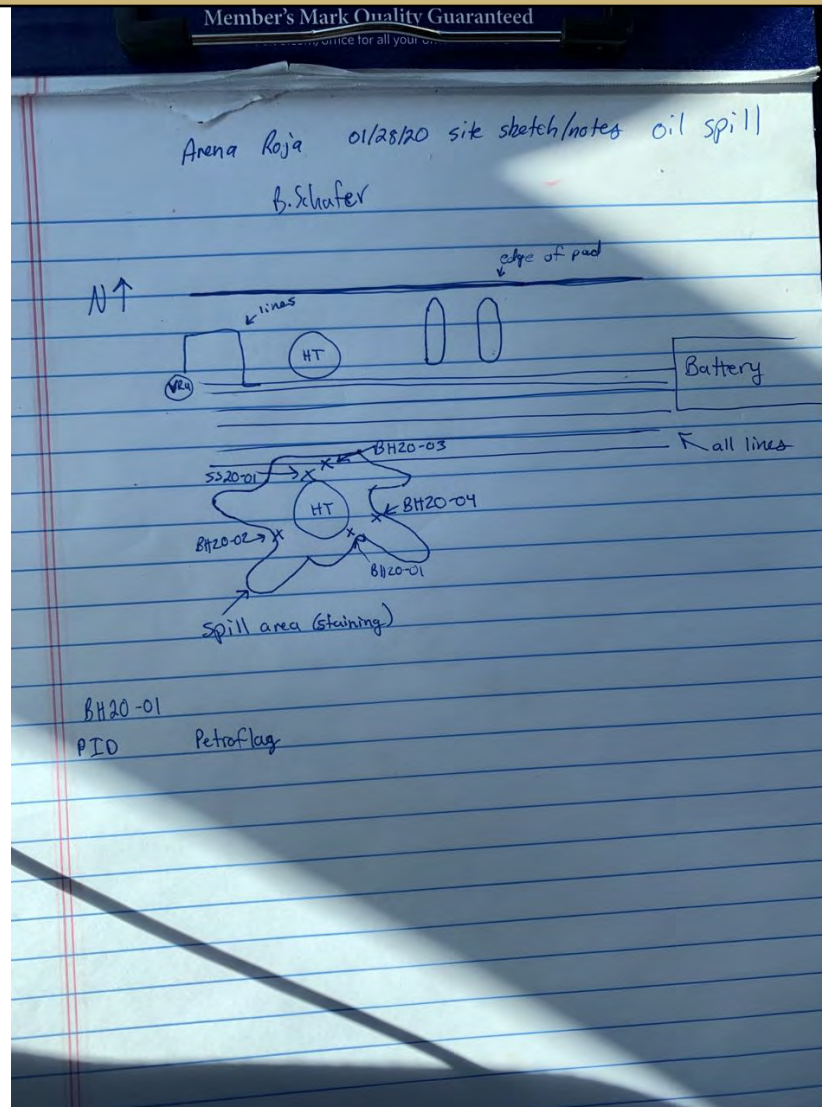 Member's Mark Quality Guaranteed
office for all your
Arena Roja 01/28/20 site sketch/notes oil spill
B. Schafer
edge of pad
N↑
lines
HT
VRU
Battery
all lines
BH20-03
SS20-01
HT
BH20-04
BH20-02
BH20-01
Spill area (staining)
BH20-01
PID Petroflag